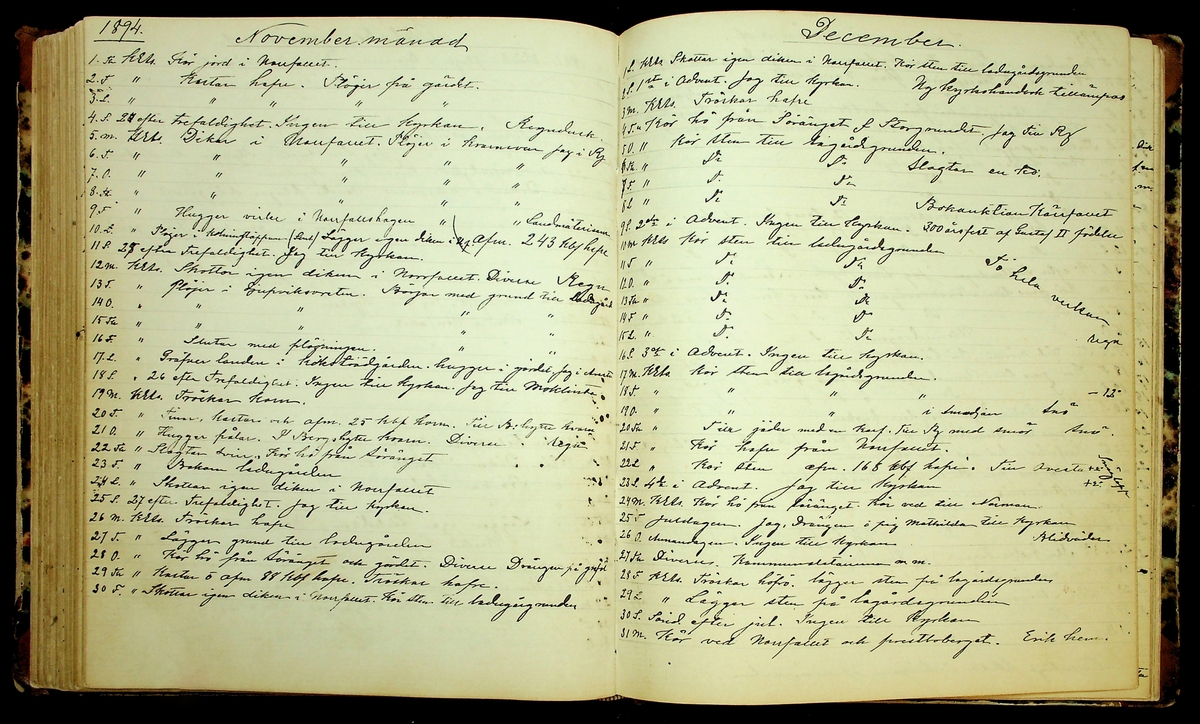 1894.
November månad
1. Th KRts. Kör jord i Norrfallet.
2. F. " Kastar hafre. Plöger på gärdet.
3. L. " " " " " "
4. S. 24 efter trefaldighet. Ingen till Kyrkan. Regndusk
5. m. KRts. Dikar i Norrfallet. Plöjer i jag i Rg
6. T. " " " " "
7. O. " " " " "
8. Th. " " " "
9. F. " Hugger virke i Norrfallshagen " " Landmätaren
10. L. " Plöjer i Lägger igen diken i afm. 243 kbf hafre
11. S. 25 efter Trefaldighet. Jag till Kyrkan.
12 m. KRts. Skottar igen diken i Norrfallet. Diverse Regn
13 T. " Plöjer i Börjar med grund till ladugård
14 O. " " " "
15 Th " " " "
16 F. " Slutar med plögningen. " "
17. L. " landen i Hugger i gärdet. Jag i
18 S. " 26 efter Trefaldighet. Ingen till Kyrkan. Jag till
19 M. KRts. Tröskar Korn.
20 T. " Kastar och afm. 25 kbf korn. Till B:hytte kvarn
21 O. " Hugger I Bergshytte kvarn. Diverse regn
22 Th " Slagtar svin. Kör hö från Söränget
23 F. " Bakom ladugården
24 L. " Skottar igen diken i Norrfallet
25 S. 27 efter Trefaldighet. Jag till kyrkan.
26 m. KRts. Tröskar hafre
27 T. " Lägger grund till ladugården
28 O. " Kör hö från Söränget och gärdet. Diverse Drängen på
29 Th " Kastar o afm 88 kbf hafre. Tröskar hafre.
30 F. " Skottar igen diken i Norrfallet. Kör sten till ladugårgrunden
December.
1 L. KRts Skottar igen diken i Norrfallet. Kör sten till ladugårdsgrunden
2 S. 1sta i Advent. Jag till Kyrkan. Ny kyrkohandbok tillämpas
3 m. KRts. Tröskar hafre
4 T. " Kör hö från Söränget f Storgrundet. Jag till Rg
5 O. " Kör sten till lagårdsgrunden.
6 Th " Do Do Slagtar en ko.
7 F. " Do Do
8 L " Do Do Bokauktion Kärrfallet
9 S. 2dra i Advent. Ingen till Kyrkan. 300 årsfest af Gustaf II födelse
10 m KRts Kör sten till ladugårdsgrunden
11 T. " Do Do Tö hela veckan
12 O. " Do Do
13 Th " Do Do
14 F. " Do Do regn
15 L. " Do Do
16 S. 3dje i Advent. Ingen till Kyrkan.
17 M. KRts Kör sten till lagårdsgrunden.
18 T. " " " " - 12°
19 O. " " " i smedjan Snö
20 Th " Till med en karf. Till Rg med smör Snö.
21 F. " Kör hafre från Norrfallet.
22 L " Kör sten afm. 168 kbf hafre. Till Avesta +2°
23 S. 4de i Advent. Jag till Kyrkan +2°
24 M. KRts Kör hö från Söränget. Kör ved till Norman
25 T. Juldagen. Jag, Drängen o pig Mathilda till Kyrkan
26 O. Annandagen. Ingen till Kyrkan. Blidväder
27 Th Diverse. Kommunalstämma m.m.
28 F KRts. Tröskar lägger sten på lagårdsgrunden
29 L " Lägger sten på lagårdsgrunden
30 S. Sönd. efter jul. Ingen till Kyrkan
31 M. Kör ved Norrfallet och prostboberget. Erik hem.